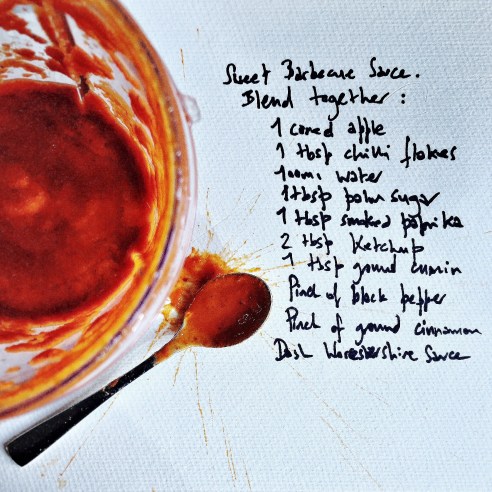 Sweet Barbecue Sauce.
Blend together :
1 cored apple
1 tbsp chilli flakes
100ml water
1 tbsp palm sugar
1 tbsp smoked paprika
2 tbsp Ketchup
1 tbsp ground cumin
Pinch of black pepper
Pinch of ground cinnamon
Dash Worcestershire Sauce